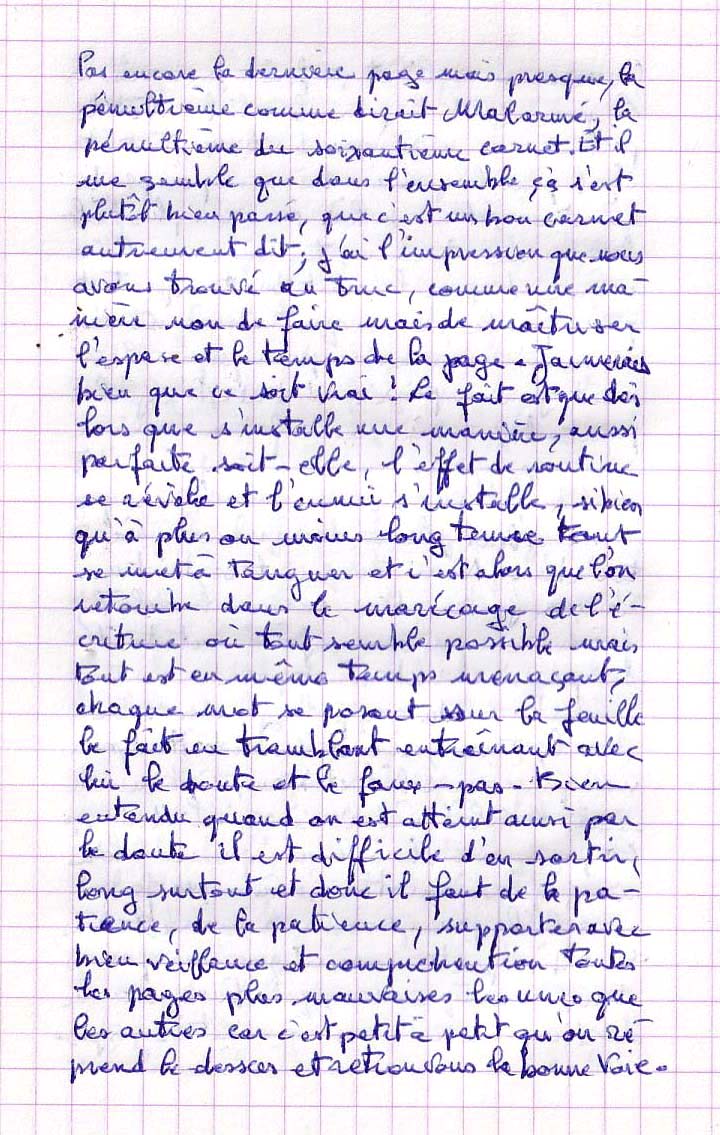 Pas encore la dernière page mais presque, la
pénultième comme dirait Malarmé, la
pénultième du soixantième carnet. Et il
me semble que dans l'ensemble, çà s'est
plutôt bien passé, que c'est un bon carnet
autrement dit, j'ai l'impression que nous
avons trouvé un truc, comme une ma-
nière non de faire mais de maîtriser
l'espace et le temps de la page. J'aimerais
bien que ce soit vrai! Le fait est que dès
lors que s'installe une manière, aussi
parfaite soit-elle, l'effet de routine
se révèle et l'ennui s'installe, si bien
qu'à plus ou moins long terme tout
se met à tanguer et c'est alors que l'on
retombe dans le marécage de l'é-
criture où tout semble possible mais
tout est en même temps menaçant,
chaque mot se posant sur la feuille
le fait en tremblant entraînant avec
lui le doute et le faux-pas. Bien
entendu quand on est atteint ainsi par
le doute il est difficile d'en sortir,
long surtout et donc il faut de la pa-
tience, de la patience, supporter avec
bien veillance et compréhention toutes
les pages plus mauvaises les unes que
les autres car c'est petit à petit qu'on re-
prend le dessus et retrouvons la bonne voie.